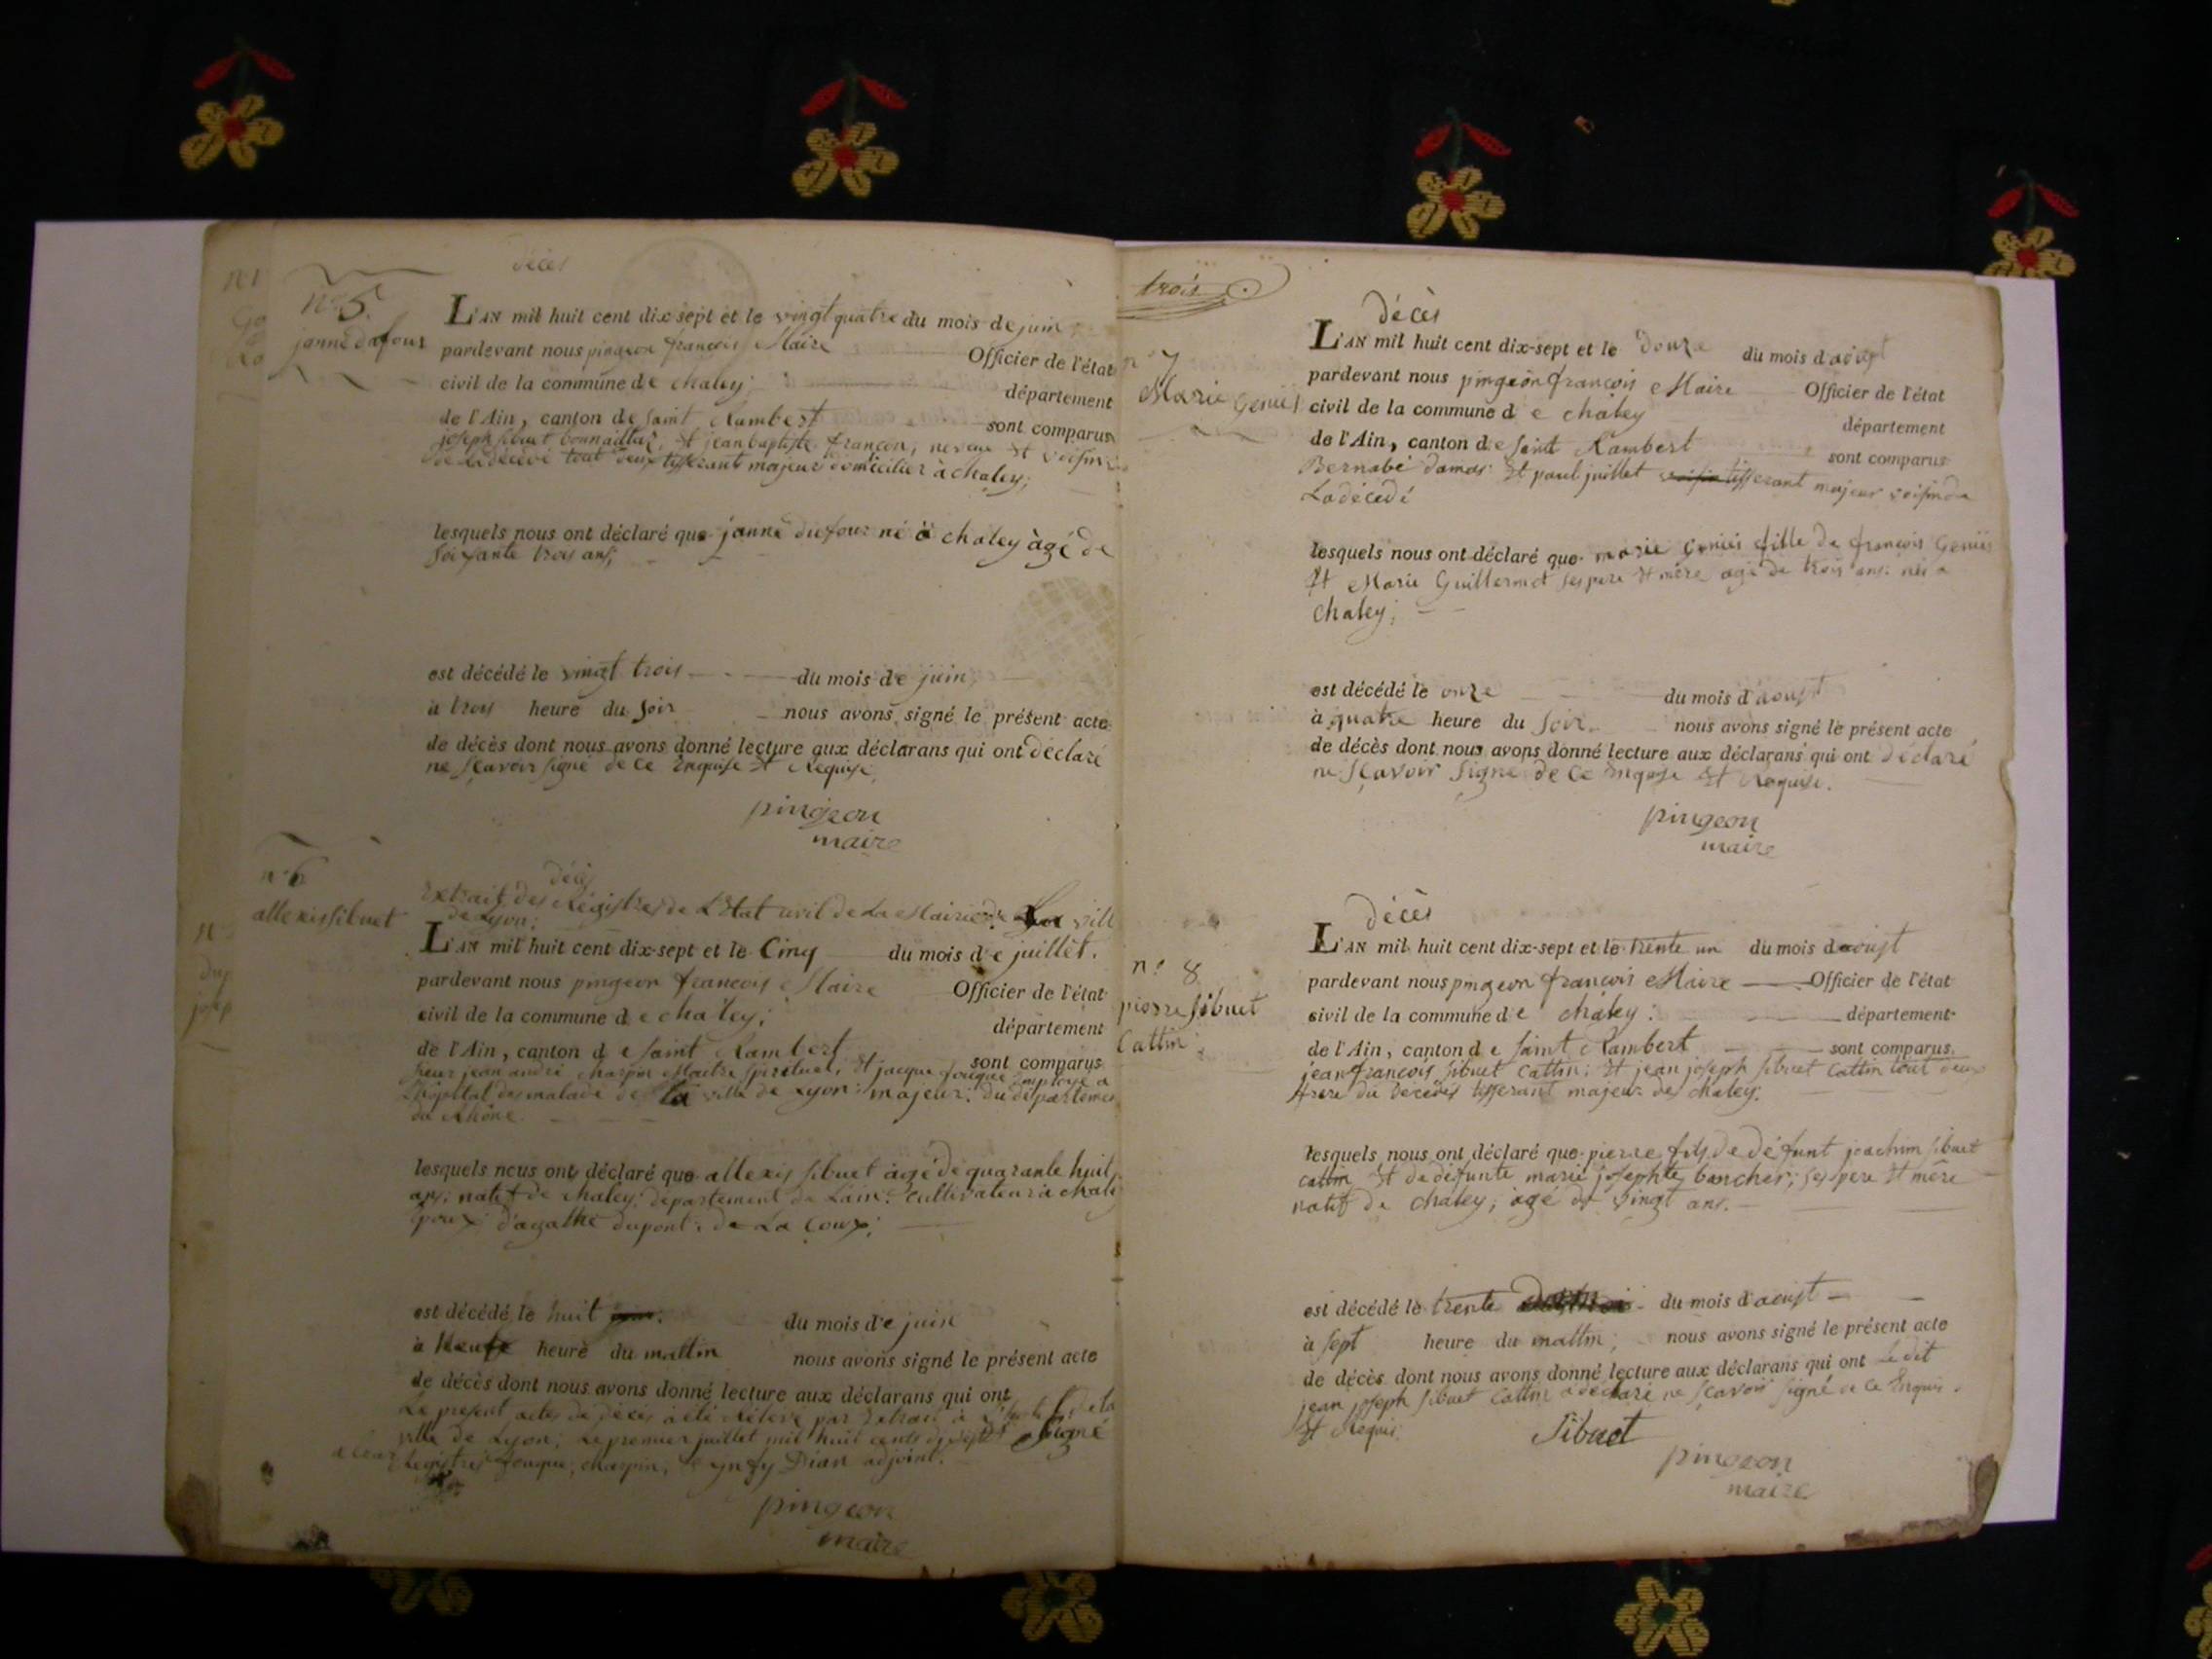 décès
n° 5.
janne dufour
L'AN mil huit cent dix-sept et le vingt quatre du mois de juin
pardevant nous pingeon françois Maire Officier de l'état
civil de la commune de chaley; département
de l'Ain, canton de saint Rambert sont comparus
joseph sibuet bonnaillar, et jean baptiste françon, neveux et voisin
de la décédé tout deux tisserant majeur domicilier à chaley;
lesquels nous ont déclaré que janne dufour né à chaley àgé de
soixante trois ans;
est décédé le vingt trois du mois de juin
à trois heure du soir nous avons signé le présent acte
de décès dont nous avons donné lecture aux déclarans qui ont déclaré
ne sçavoir signé de ce enquise et Requise.
pingeon
maire
n° 6
allexis sibuet
décès
Extrait des Régistres de L'Etat civil de la Mairie de La vill
de Lyon:
L'AN mil huit cent dix-sept et le Cinq du mois de juillet.
pardevant nous pingeon françois Maire Officier de l'état
civil de la commune de chaley; département
de l'Ain, canton de saint Rambert sont comparus
sieur jean andré charpin Maitre spirituel, et jacque fouque employé a
L'hôpital des malade de la ville de Lyon: majeur. du departemen
du Rhône
lesquels nous ont déclaré que allexis sibuet àgé de quarante huit
ans; natif de chaley; département de Lain. cultivateur à chaley
époux d'agathe dupont; de La Coux;
est décédé le huit du mois de juin
à Neufe heure du mattin nous avons signé le présent acte
de décès dont nous avons donné lecture aux déclarans qui ont
Le present actes de décès à été Rélévé par Extrait à de la
ville de Lyon; Le premier juillet mil huit cents dix sept signé
a leur Registres fouque, charpin, Dian adjoint.
pingeon
maire
trois
n° 7
Marie Geniés
décès
L'AN mil huit cent dix-sept et le Douze du mois d'aoust
pardevant nous pingeon françois Maire Officier de l'état
civil de la commune de chaley département
de l'Ain, canton de saint Rambert sont comparus
Bernabé damas et paul juillet tisserant majeur voisin de
La décédé
lesquels nous ont déclaré que marie Geniés fille de françois Geniés
Et Marie Guillermet ses pere et mère agé de trois ans. née a
chaley;
est décédé le onze du mois d'aoust
à quatre heure du soir nous avons signé le présent acte
de décès dont nous avons donné lecture aux déclarans qui ont déclaré
ne sçavoir signé de ce enquise et Requise.
pingeon
maire
n° 8
pierre sibuet
Cattin
décès
L'AN mil huit cent dix-sept et le trente un du mois d'aoust
pardevant nous pingeon françois Maire Officier de l'état
civil de la commune de chaley: département
de l'Ain, canton de saint Rambert sont comparus
jean françois sibuet Cattin; Et jean joseph sibuet Cattin tout deux
frere du Décédés tisserant majeur de chaley.
lesquels nous ont déclaré que pierre fils de défunt joachim sibuet
cattin Et de défunte marie josephte bancher; ses pere et mère
natif de chaley; agé de vingt ans.
est décédé le trente du mois d'aoust
à sept heure du mattin; nous avons signé le présent acte
de décès dont nous avons donné lecture aux déclarans qui ont Le dit
jean joseph sibuet Cattin a déclaré ne sçavoir signé de ce Enquis
Et Requis.
Sibuet
pingeon
maire